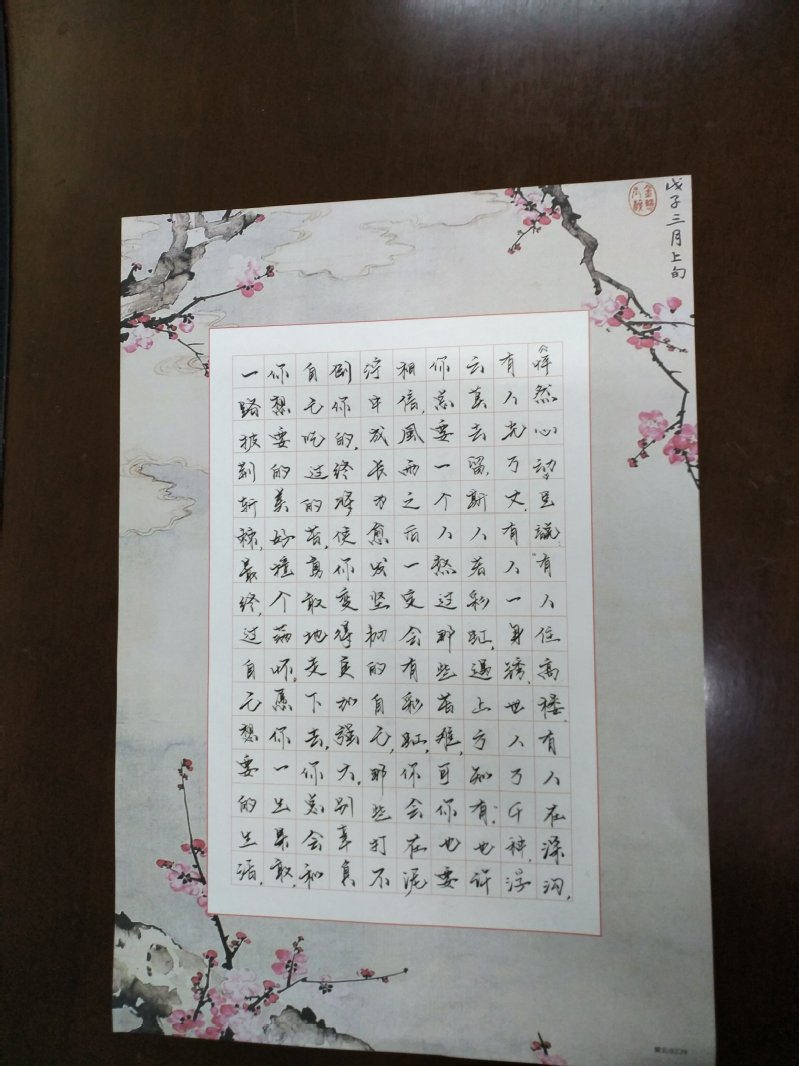 戊子三月上旬
《怦然心动》里說，“有人住高楼，有人在深沟，
有人光万丈，有人一身锈，世人万千种，浮
云莫去留，斯人若彩虹，遇上方知有。”也许
你总要一个人熬过那些苦难，可你也要
相信，風雨之后一定会有彩虹，你会在泥
泞中成长为愈发坚韧的自己，那些打不
倒你的，终将使你变得更加强大，别辜负
自己吃过的苦，勇敢地走下去，你总会和
你想要的美好撞个满怀。愿你一生果敢，
一路披荆斩棘，最终，过自己想要的生活。